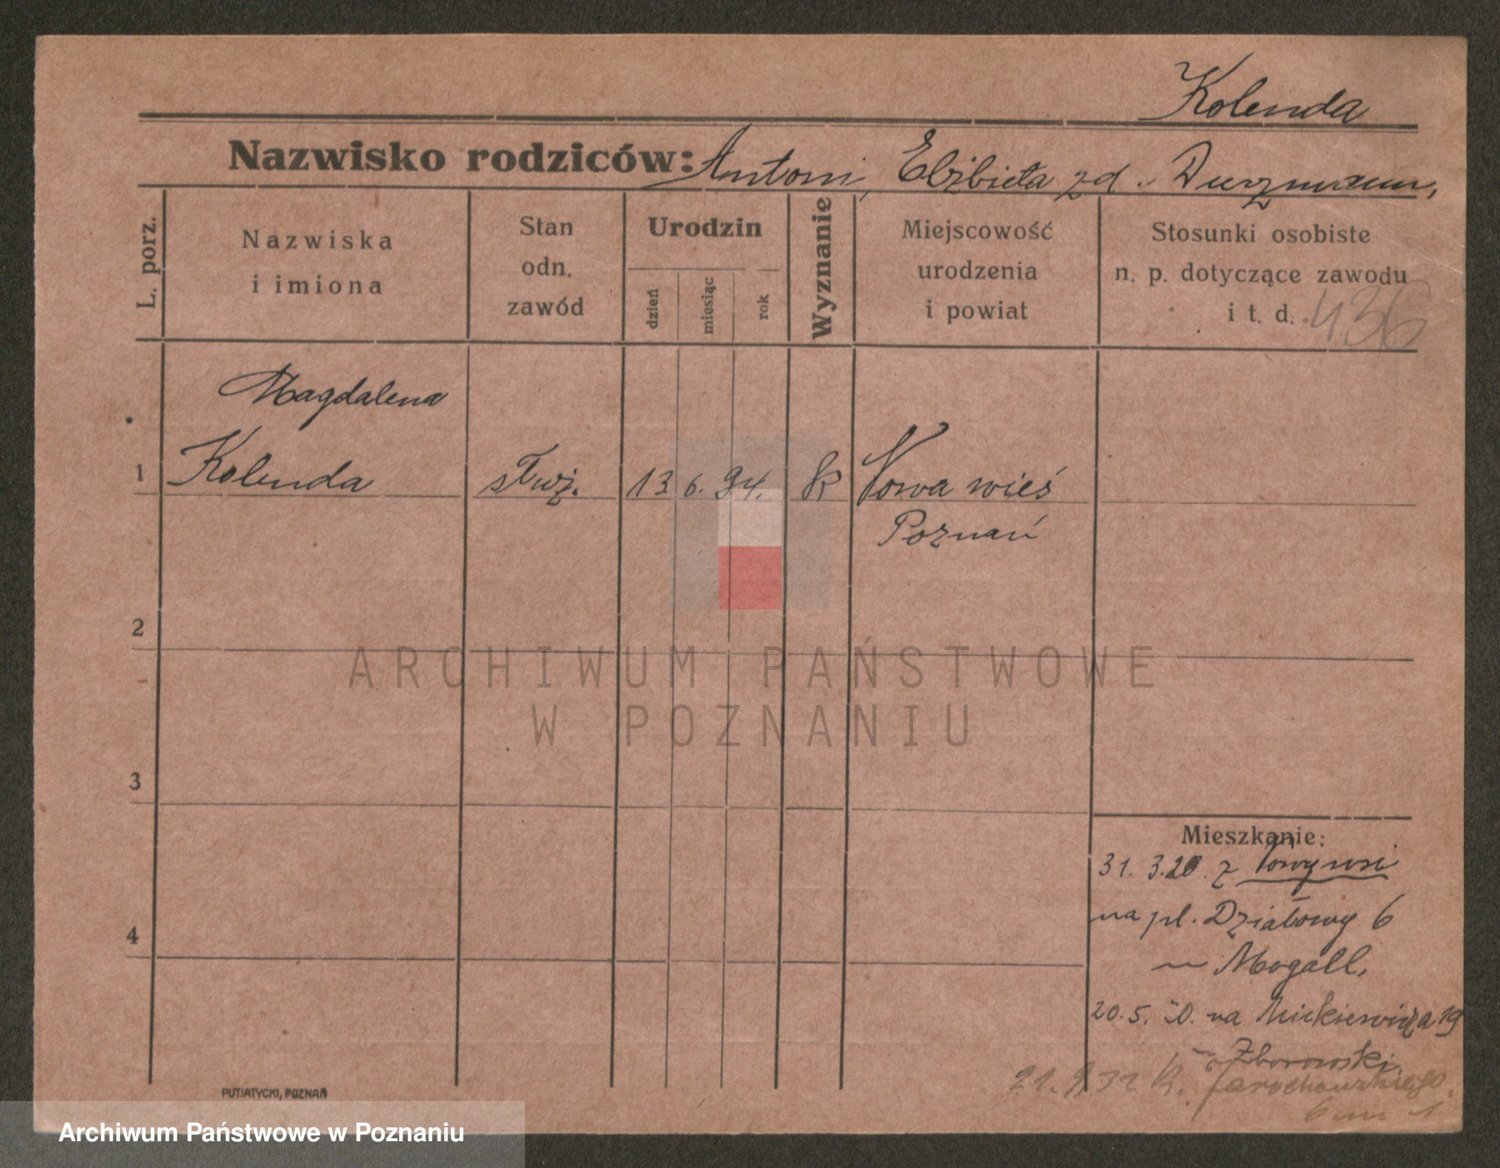 Kolenda
Nazwisko rodziców: Antoni, Elżbieta zd.
L. porz.
Nazwiska
i imiona
Stan
odn.
zawód
Urodzin
dzień
miesiąc
rok
Wyznanie
Miejscowość
urodzenia
i powiat
Stosunki osobiste
n. p. dotyczące zawodu
i t. d. 436
Magdalena
1 Kolenda służ. 13 6. 94. k Nowa wieś
Poznań
2
3
4
Mieszkanie:
31. 3.20. z
na pl. Działowy 6
Mogall.
20.5. na Mickiewicza 19
Zborowski
Jarochowskiego
PUTIATYCKI, POZNAŃ
ARCHIWUM PAŃSTWOWE
W POZNANIU
Archiwum Państwowe w Poznaniu